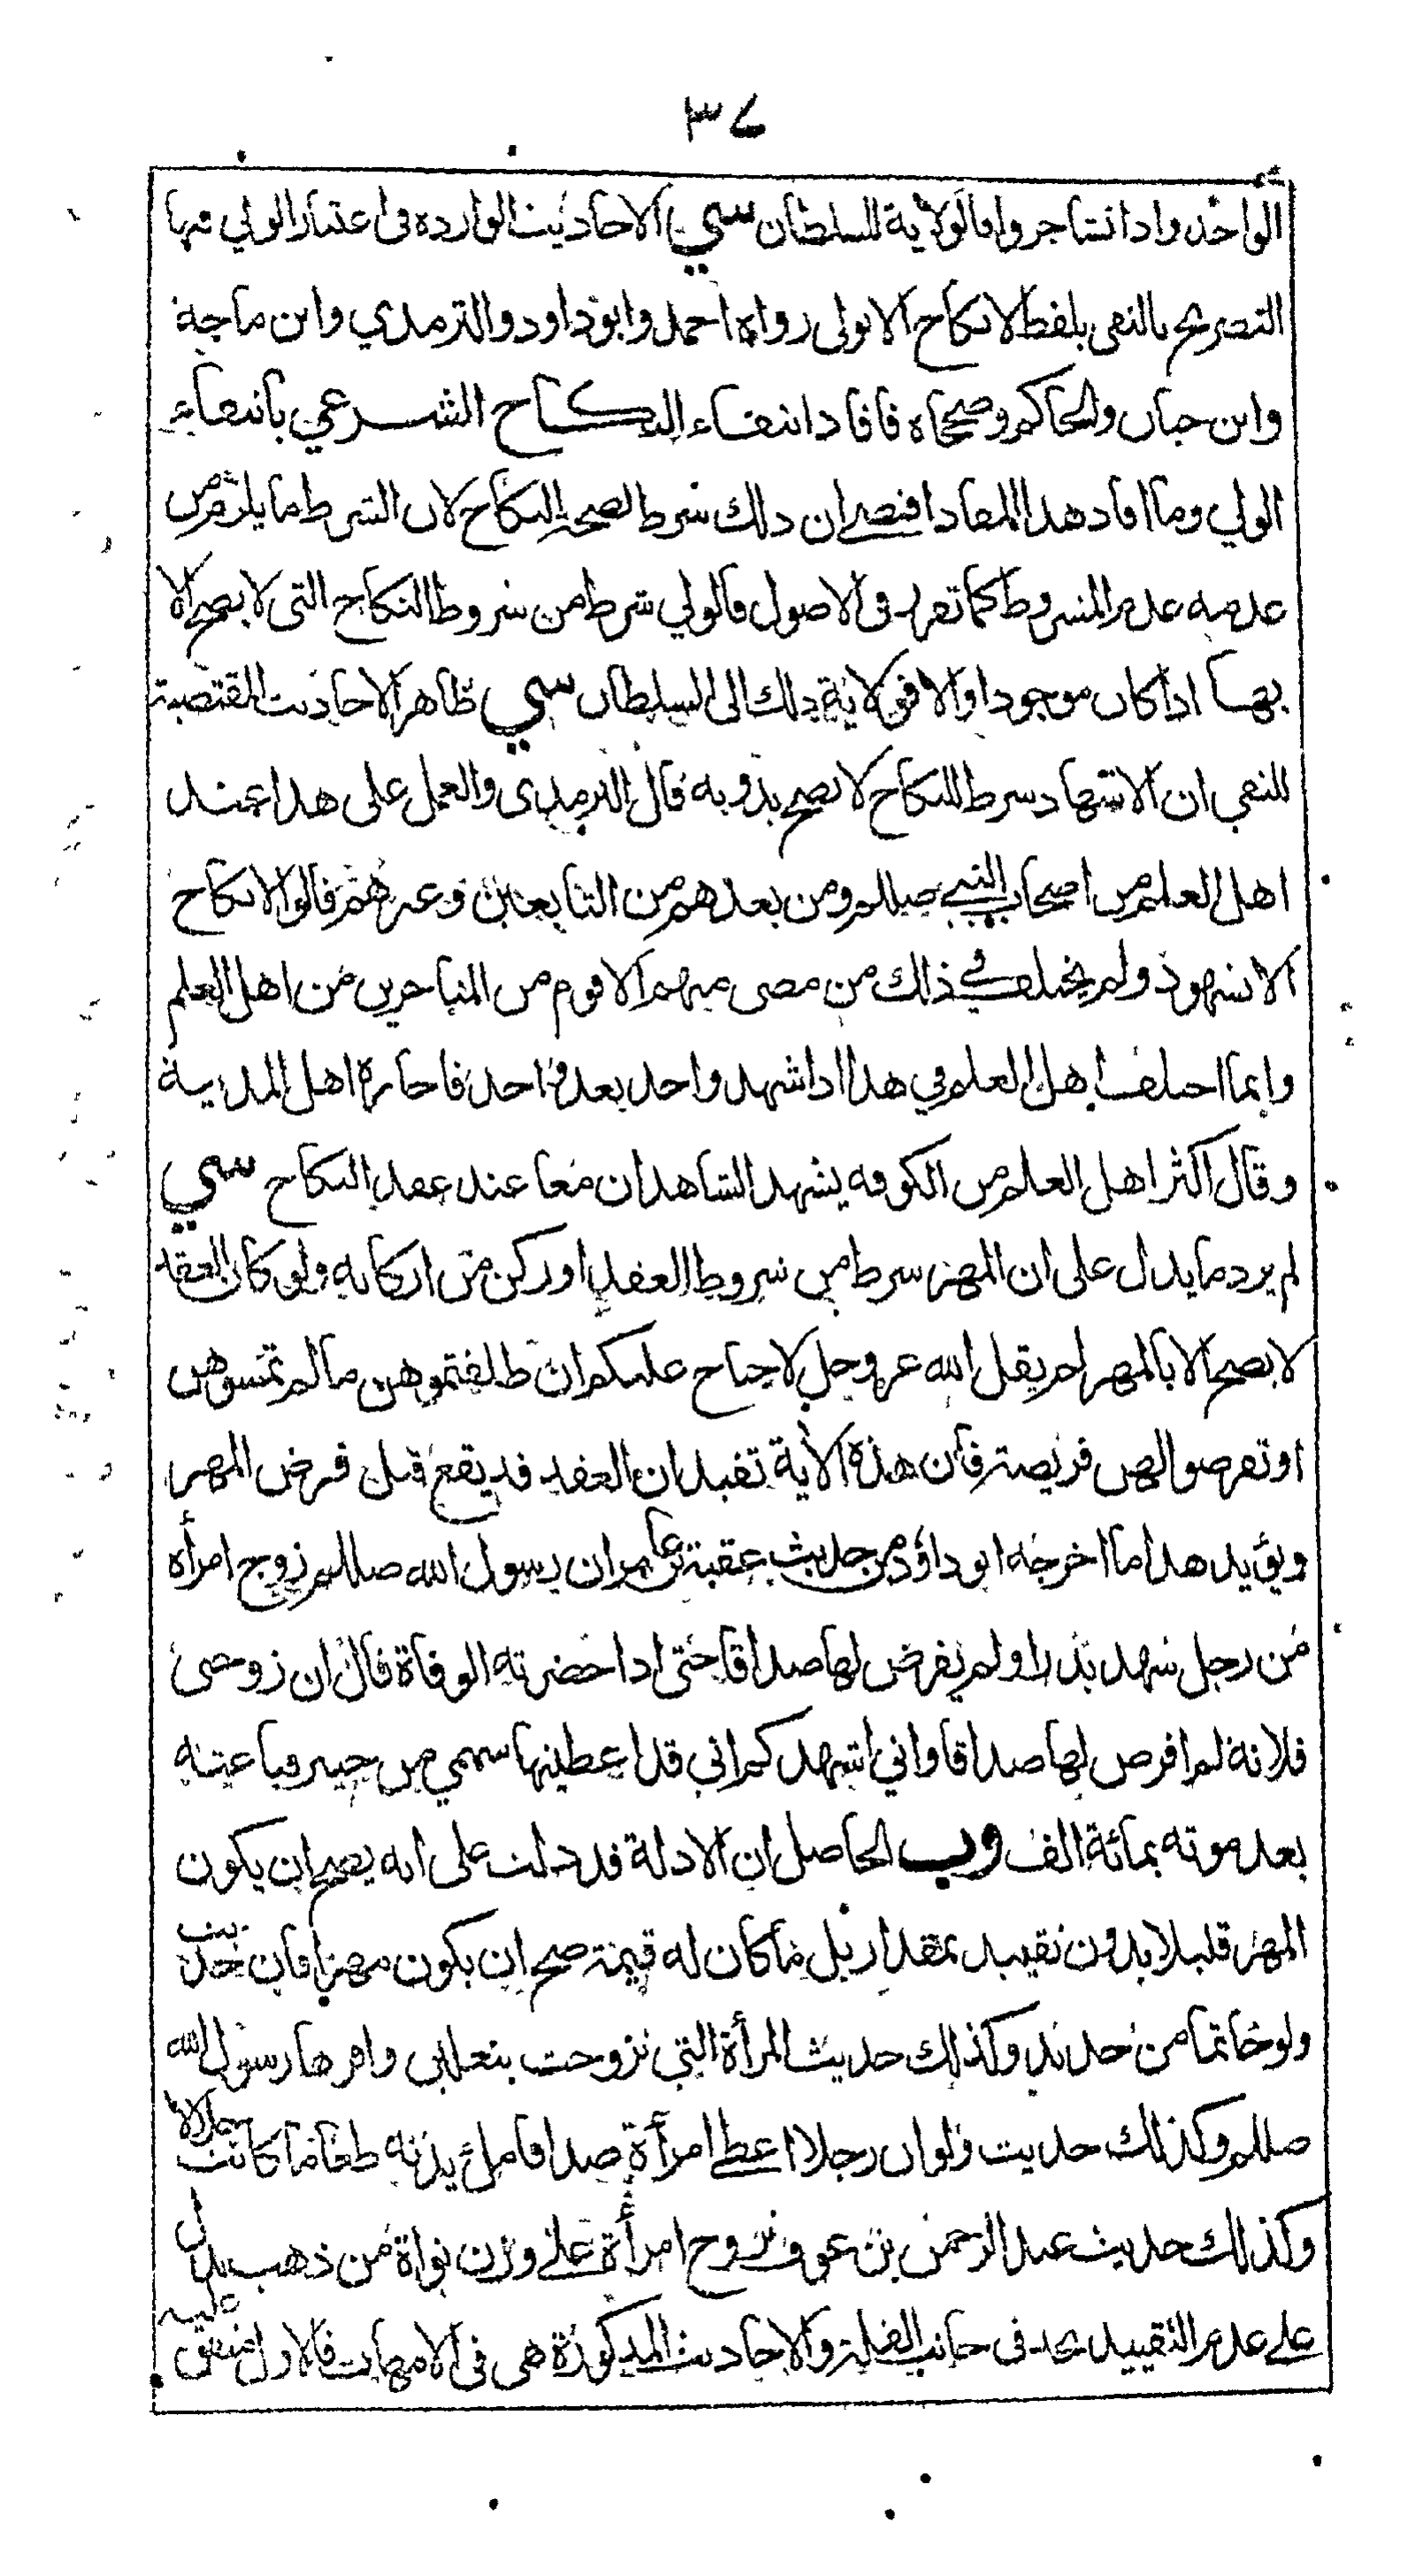 ٣٧
الواحد واذا تشاجروا فالولاية للسلطان سي الاحاديث الوارده فى اعتبار الولي فيها
التصريح بالنفى بلفظ لا نكاح الا بولى رواه احمد وابو داود والترمذي وابن ماجة
وابن حبان والحاكم وصححاه فافاد انتفاء النكاح الشرعي بانتفاء
الولي وما افاد هذا المفاد اقتضى ان ذلك شرط لصحة النكاح لان الشرط ما يلزم من
عدمه عدم المشروط كما تقرر فى الاصول فالولي شرط من شروط النكاح التى لا يصح الا
بها اذا كان موجودا والا فولاية ذلك الى السلطان سي ظاهر الاحاديث المقتضية
للنفي ان الاشهاد شرط للنكاح لا يصح بدونه قال الترمذى والعمل على هذا عند
اهل العلم من اصحاب النبي صلىلم ومن بعدهم من التابعين وغيرهم قالوا لا نكاح
الا بشهود ولم يختلف في ذلك من مضى منهم الا قوم من المتاخرين من اهل العلم
وانما اختلف اهل العلم في هذا اذا شهد واحد بعد واحد فاجازه اهل المدينة
وقال اكثر اهل العلم من الكوفه يشهد الشاهدان معا عند عقد النكاح سي
لم يرد ما يدل على ان المهر شرط من شروط العقد او ركن من اركانه ولو كان العقد
لا يصح الا بالمهر لم يقل الله عز وجل لا جناح عليكم ان طلقتموهن ما لم تمسوهن
او تفرضوا لهن فريضة فان هذه الاية تفيد ان العقد قد يقع قبل فرض المهر
ويؤيد هذا ما اخرجه ابو داؤد من حديث عقبة بن عامر ان رسول الله صللم زوج امرأه
من رجل شهد بدرا ولم يفرض لها صداقا حتى اذا حضرته الوفاة قال ان زوجي
فلانة لم افرض لها صداقا واني اشهدكم اني قد اعطيتها سهمي من خيبر فباعته
بعد موته بمائة الف وب الحاصل ان الادلة قد دلت على انه يصح ان يكون
المهر قليلا بدون تقييد بمقدار بل ما كان له قيمة صح ان يكون مهرا فان حديث
ولو خاتما من حديد وكذلك حديث المرأة التي تزوجت بنعلين وامرها رسول الله
صللم وكذلك حديث ولو ان رجلا اعطى امرأة صداقا ملئ يديه طعاما كانت حلالا
وكذلك حديث عبد الرحمن بن عوف تزوج امرأة على وزن نواة من ذهب يدل
على عدم التقييد بحد فى جانب القلة والاحاديث المذكورة هى فى الامهات فالاول متفق عليه